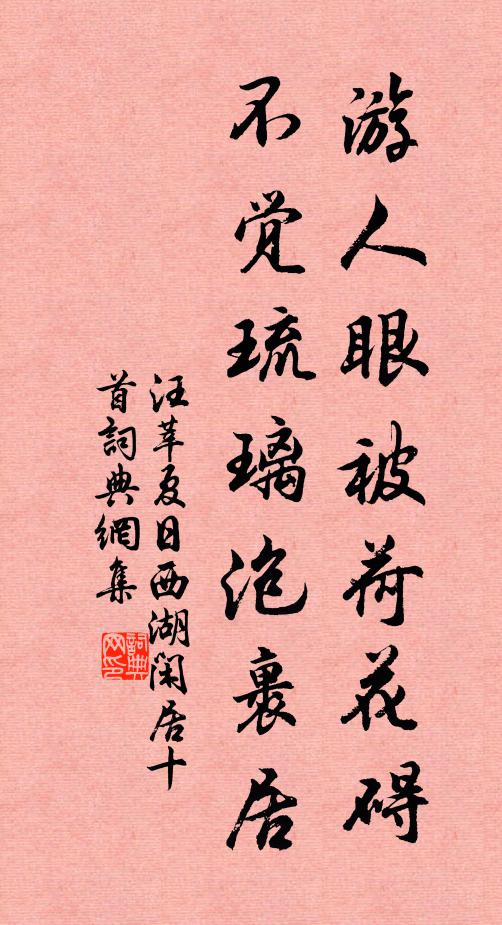 游人眼被荷花碍
不觉琉璃泡裹居
汪莘夏日西湖閑居十
首詞典網集
詞典
网印